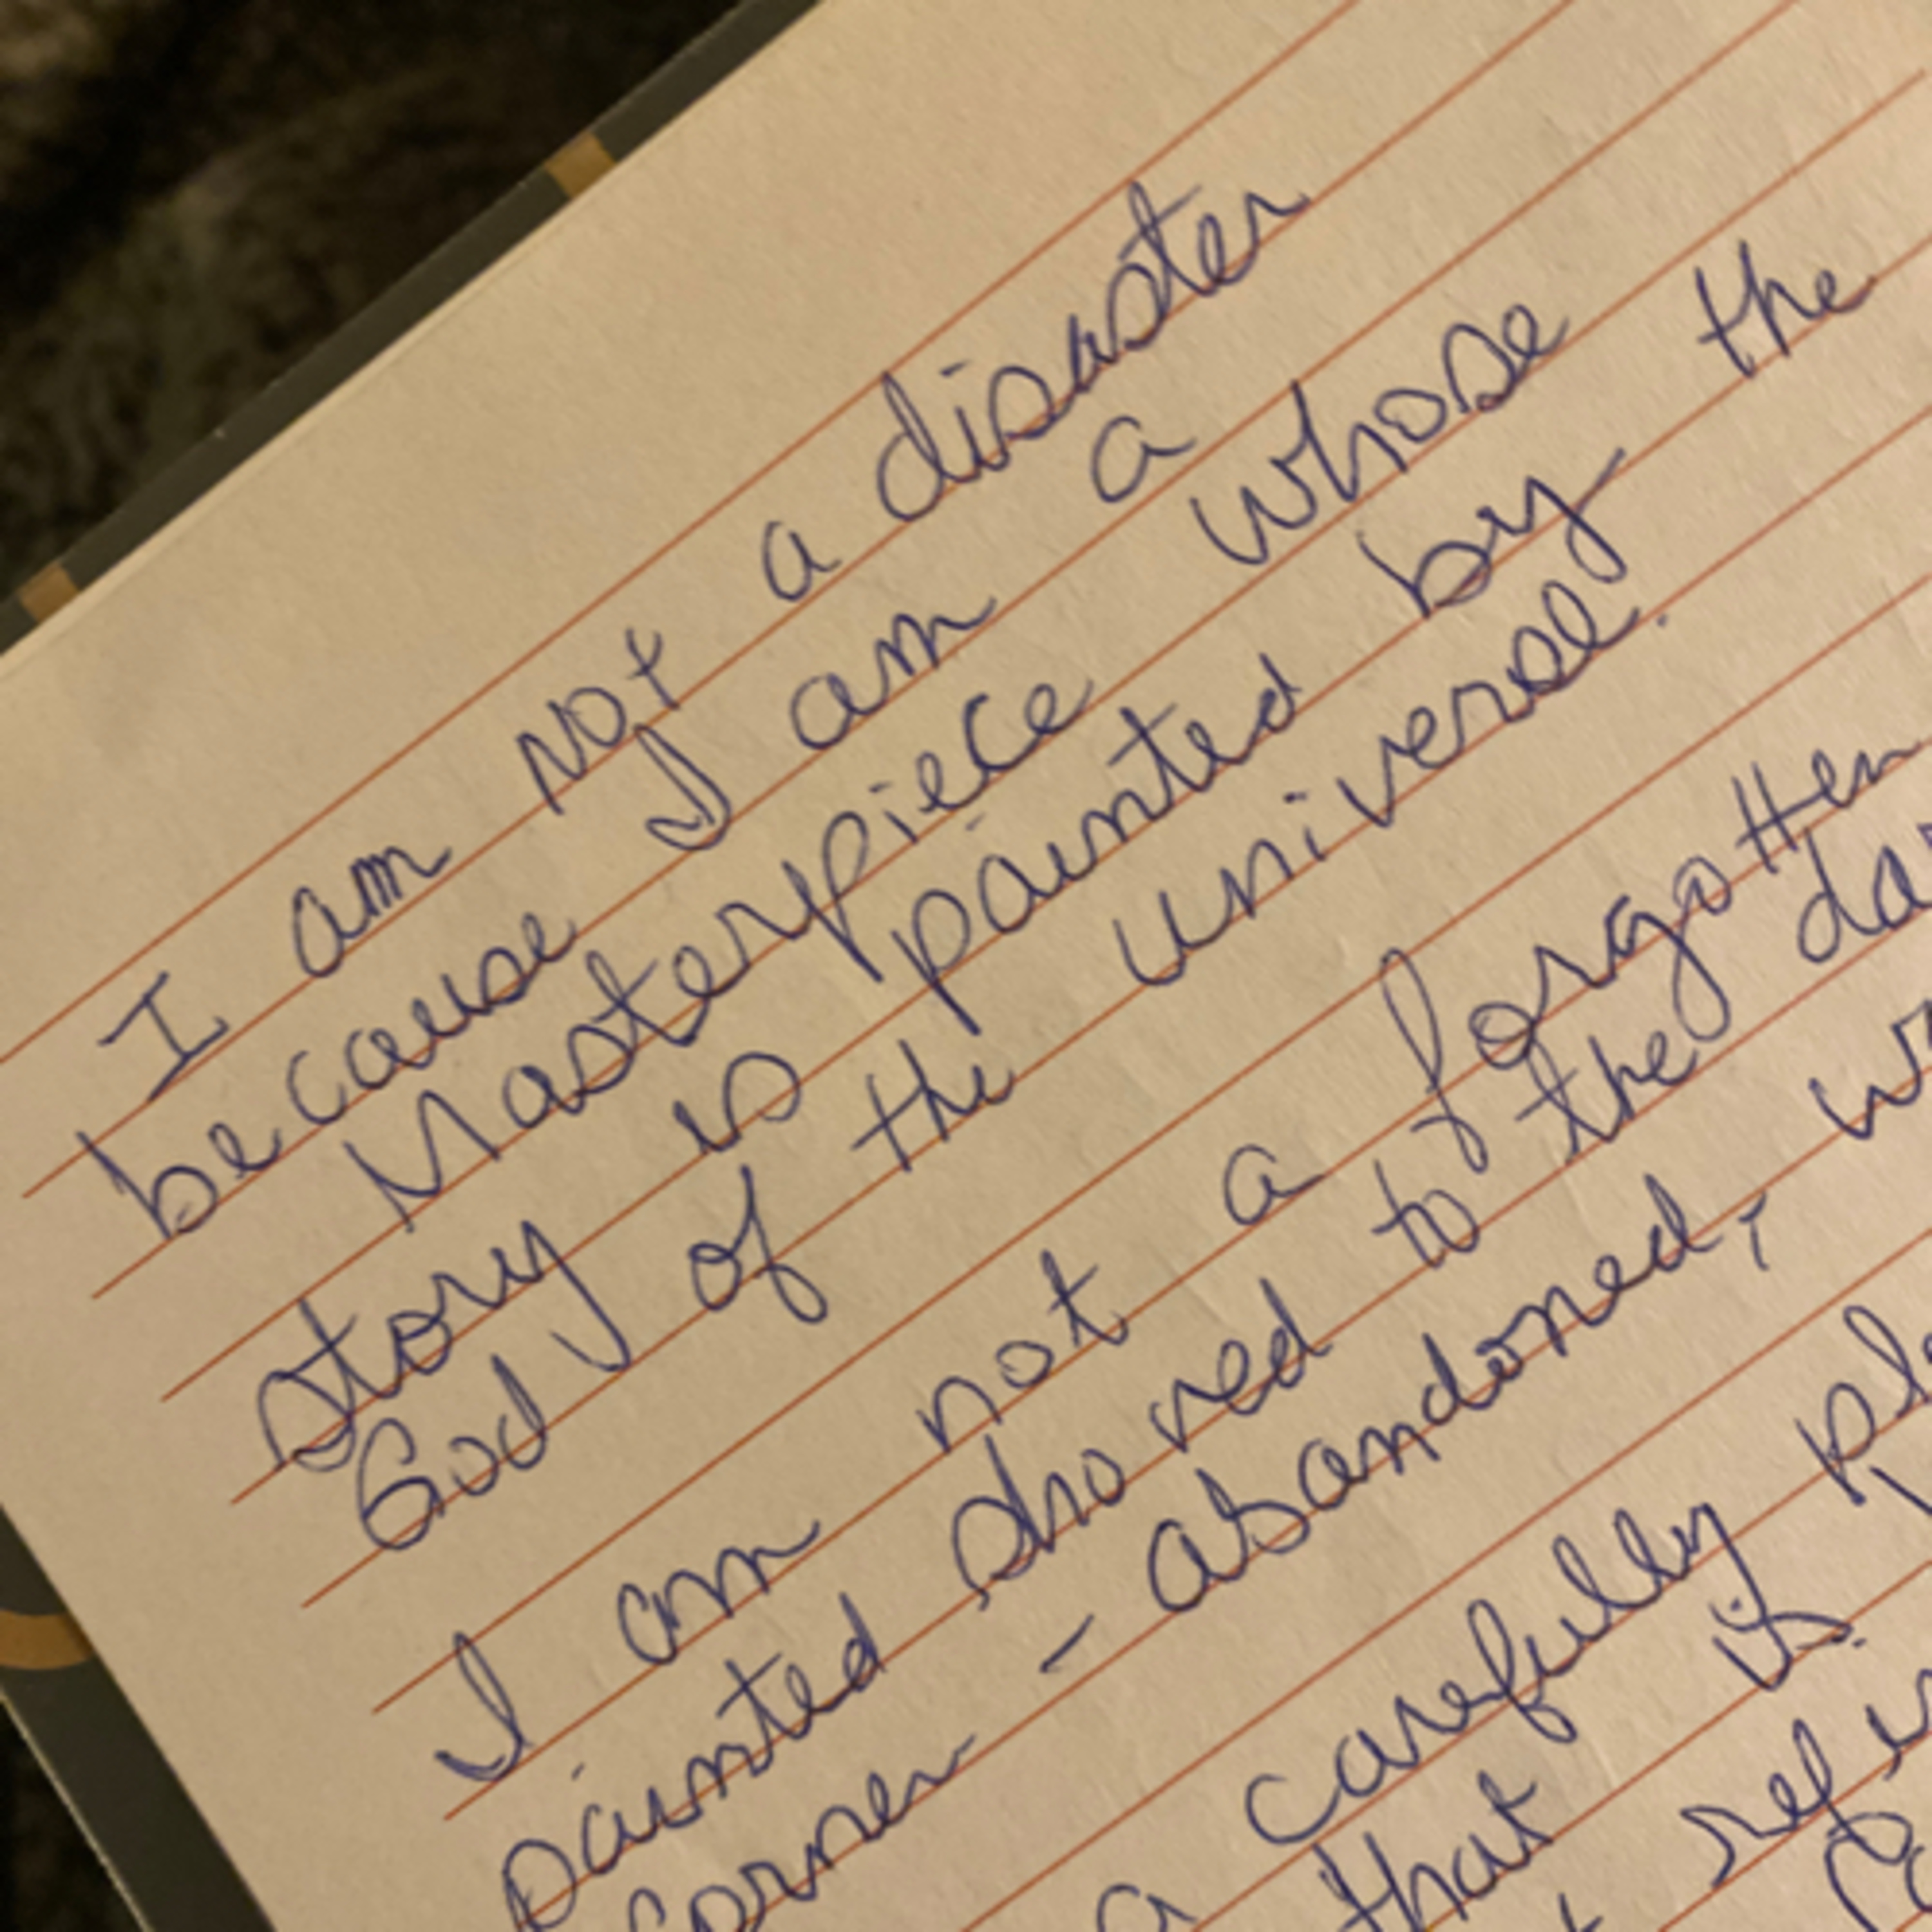 I am not a disaster
because I am a
Masterpiece whose the
story is painted by
God of the universe.
I am not a forgotten
painted shoved to the
corner - abandoned,
a carefully
that it